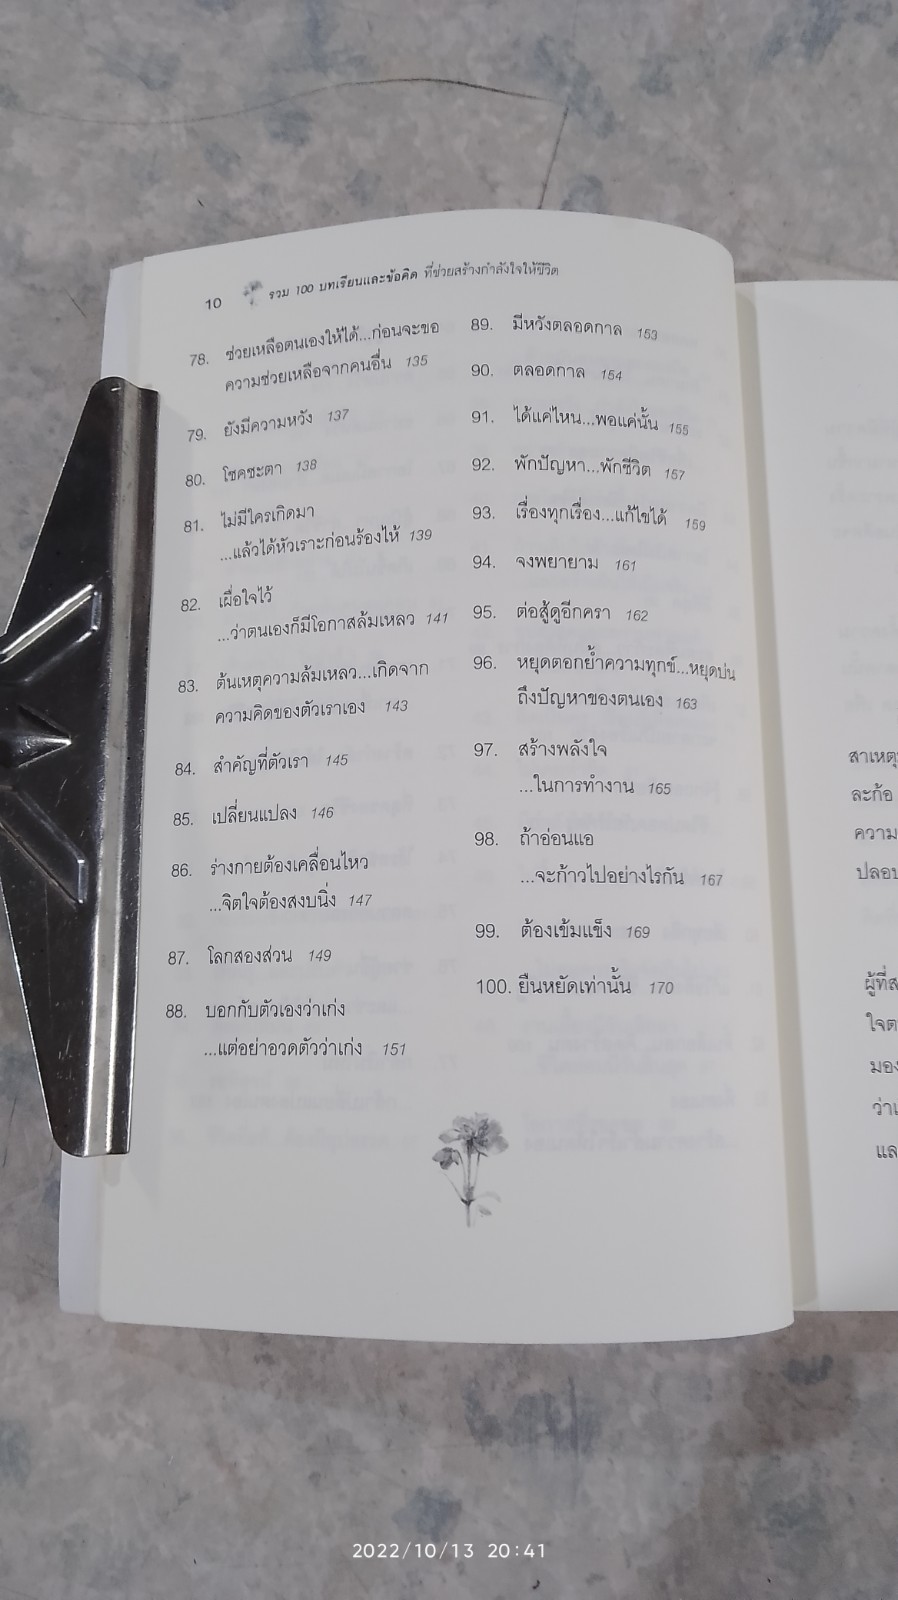 10 รวม 100 บทเรียนและข้อคิด ที่ช่วยสร้างกำลังใจให้ชีวิต
78. ช่วยเหลือตนเองให้ได้...ก่อนจะขอ
ความช่วยเหลือจากคนอื่น 135
79. ยังมีความหวัง 137
80. โชคชะตา 138
81. ไม่มีใครเกิดมา
...แล้วได้หัวเราะก่อนร้องไห้ 139
82. เผื่อใจไว้
...ว่าตนเองก็มีโอกาสล้มเหลว 141
83. ต้นเหตุความล้มเหลว...เกิดจาก
ความคิดของตัวเราเอง 143
84. สำคัญที่ตัวเรา 145
85. เปลี่ยนแปลง 146
86. ร่างกายต้องเคลื่อนไหว
...จิตใจต้องสงบนิ่ง 147
87. โลกสองส่วน 149
88. บอกกับตัวเองว่าเก่ง
...แต่อย่าอวดตัวว่าเก่ง 151
89. มีหวังตลอดกาล 153
90. ตลอดกาล 154
91. ได้แค่ไหน...พอแค่นั้น 155
92. พักปัญหา...พักชีวิต 157
93. เรื่องทุกเรื่อง...แก้ไขได้ 159
94. จงพยายาม 161
95. ต่อสู้ดูอีกครา 162
96. หยุดตอกย้ำความทุกข์...หยุดบ่น
ถึงปัญหาของตนเอง 163
97. สร้างพลังใจ
...ในการทำงาน 165
98. ถ้าอ่อนแอ
...จะก้าวไปอย่างไรกัน 167
99. ต้องเข้มแข็ง 169
100. ยืนหยัดเท่านั้น 170
สาเหตุ
ละก้อ
ความ
ปลอบ
ผู้ที่ส
ใจต
มอง
ว่าเ
แล
2022/10/13 20:41